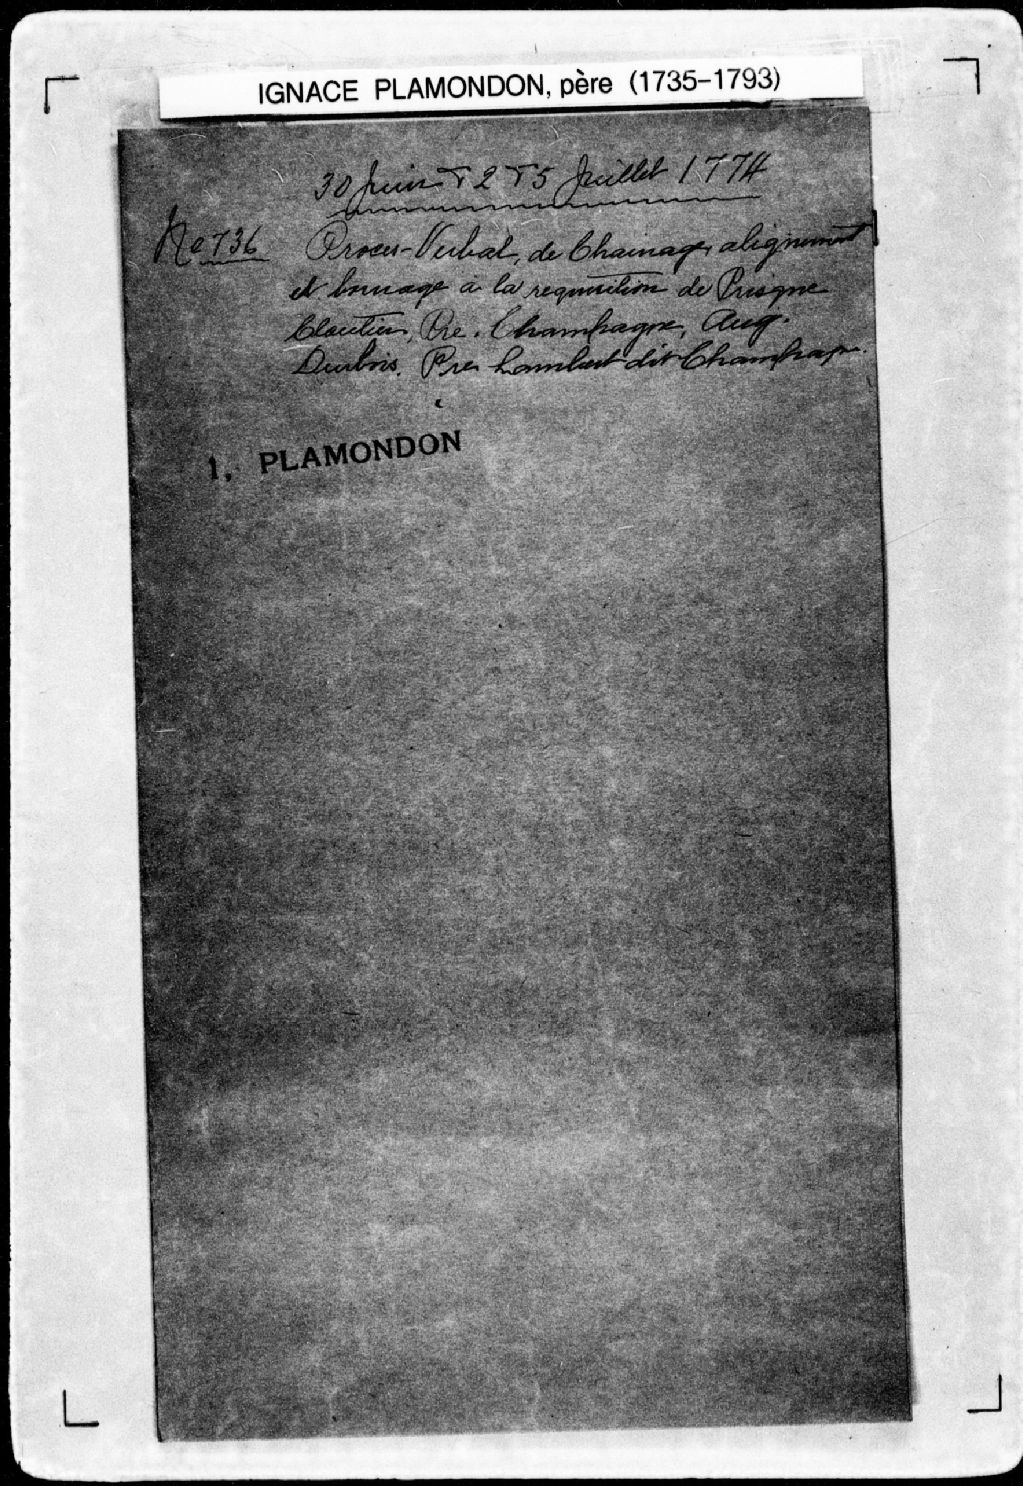 IGNACE PLAMONDON, père (1735-1793)
30 Juin & 2 & 5 Juillet 1774
No 736
Proces-Verbal, de Chainage, alignement
et bornage à la requisition de Prisque
Cloutier, Pre. Champagne, Aug.
Dubois, Pre Lambert dit Champag.
I, PLAMONDON